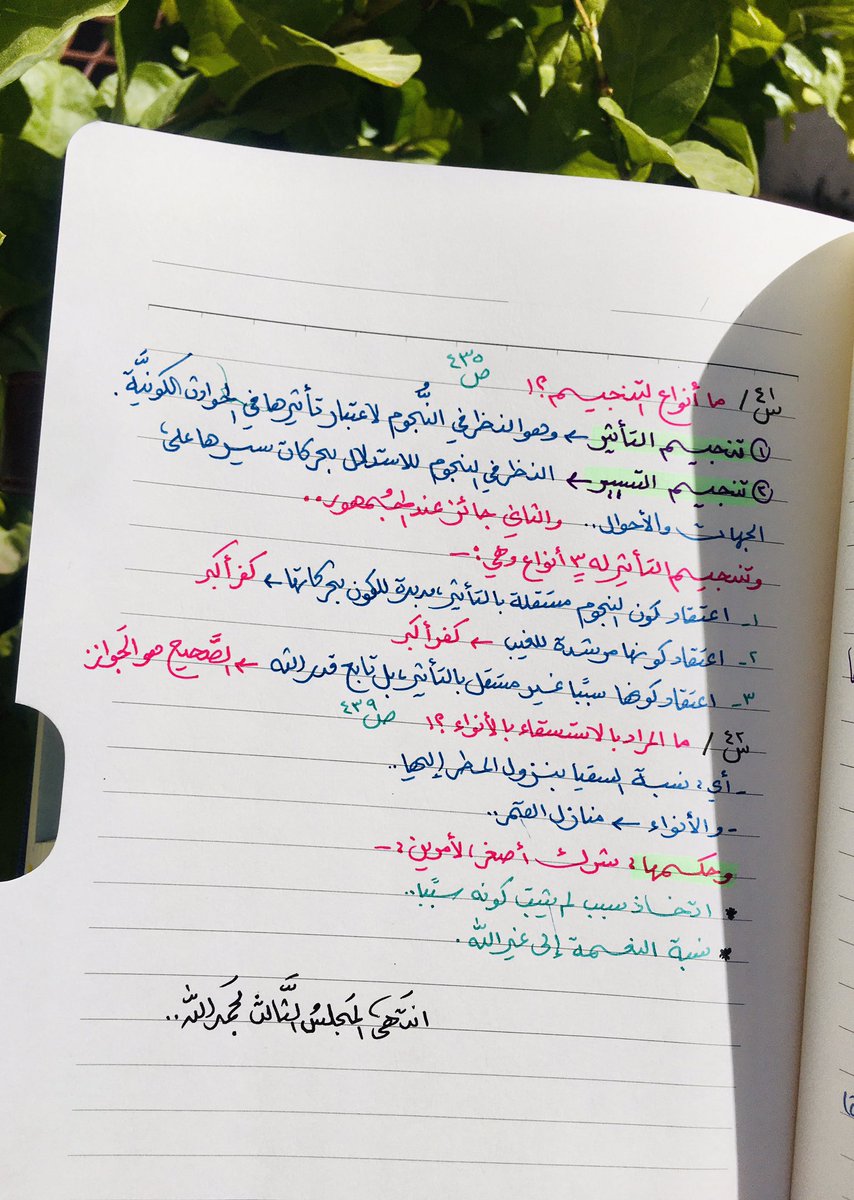 س٤١/ ما أنواع التنجيم؟! ص٤٣٥
① تنجيم التأثير ← وهو النظر في النُّجوم لاعتبار تأثيرها في الحوادث الكونيَّة.
② تنجيم التسيير ← النظر في النجوم للاستدلال بحركات سيرها على
الجهات والأحوال.. والثاني جائز عند الجُمهور..
وتنجيم التأثير له ٣ أنواع وهي :-
١- اعتقاد كون النجوم مستقلة بالتأثير، مدبرة للكون بحركاتها ← كفر أكبر
٢- اعتقاد كونها مرشدة للغيب ← كفر أكبر
٣- اعتقاد كونها سببًا غير مستقل بالتأثير، بل تابع قدر الله ← الصَّحيح هو الجَواز.
س٤٢/ ما المراد بالاستسقاء بالأنواء؟! ص٤٣٩
- أي: نسبة السقيا بنزول المطر إليها..
- والأنواء ← منازل القمر..
وحكمها: شرك أصغر، لأمرين :-
* اتخاذ سبب لم يثبت كونه سببًا..
* نسبة النعمة إلى غير الله.
انتَهى المَجلسُ الثَّالث بحمَد الله..